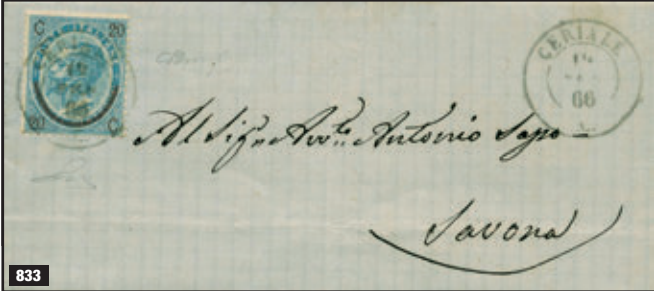 C 20
20 C
CERIALE
66
CERIALE
66
Al Sig.r Avv.to Antonio Sapo
Savona
833